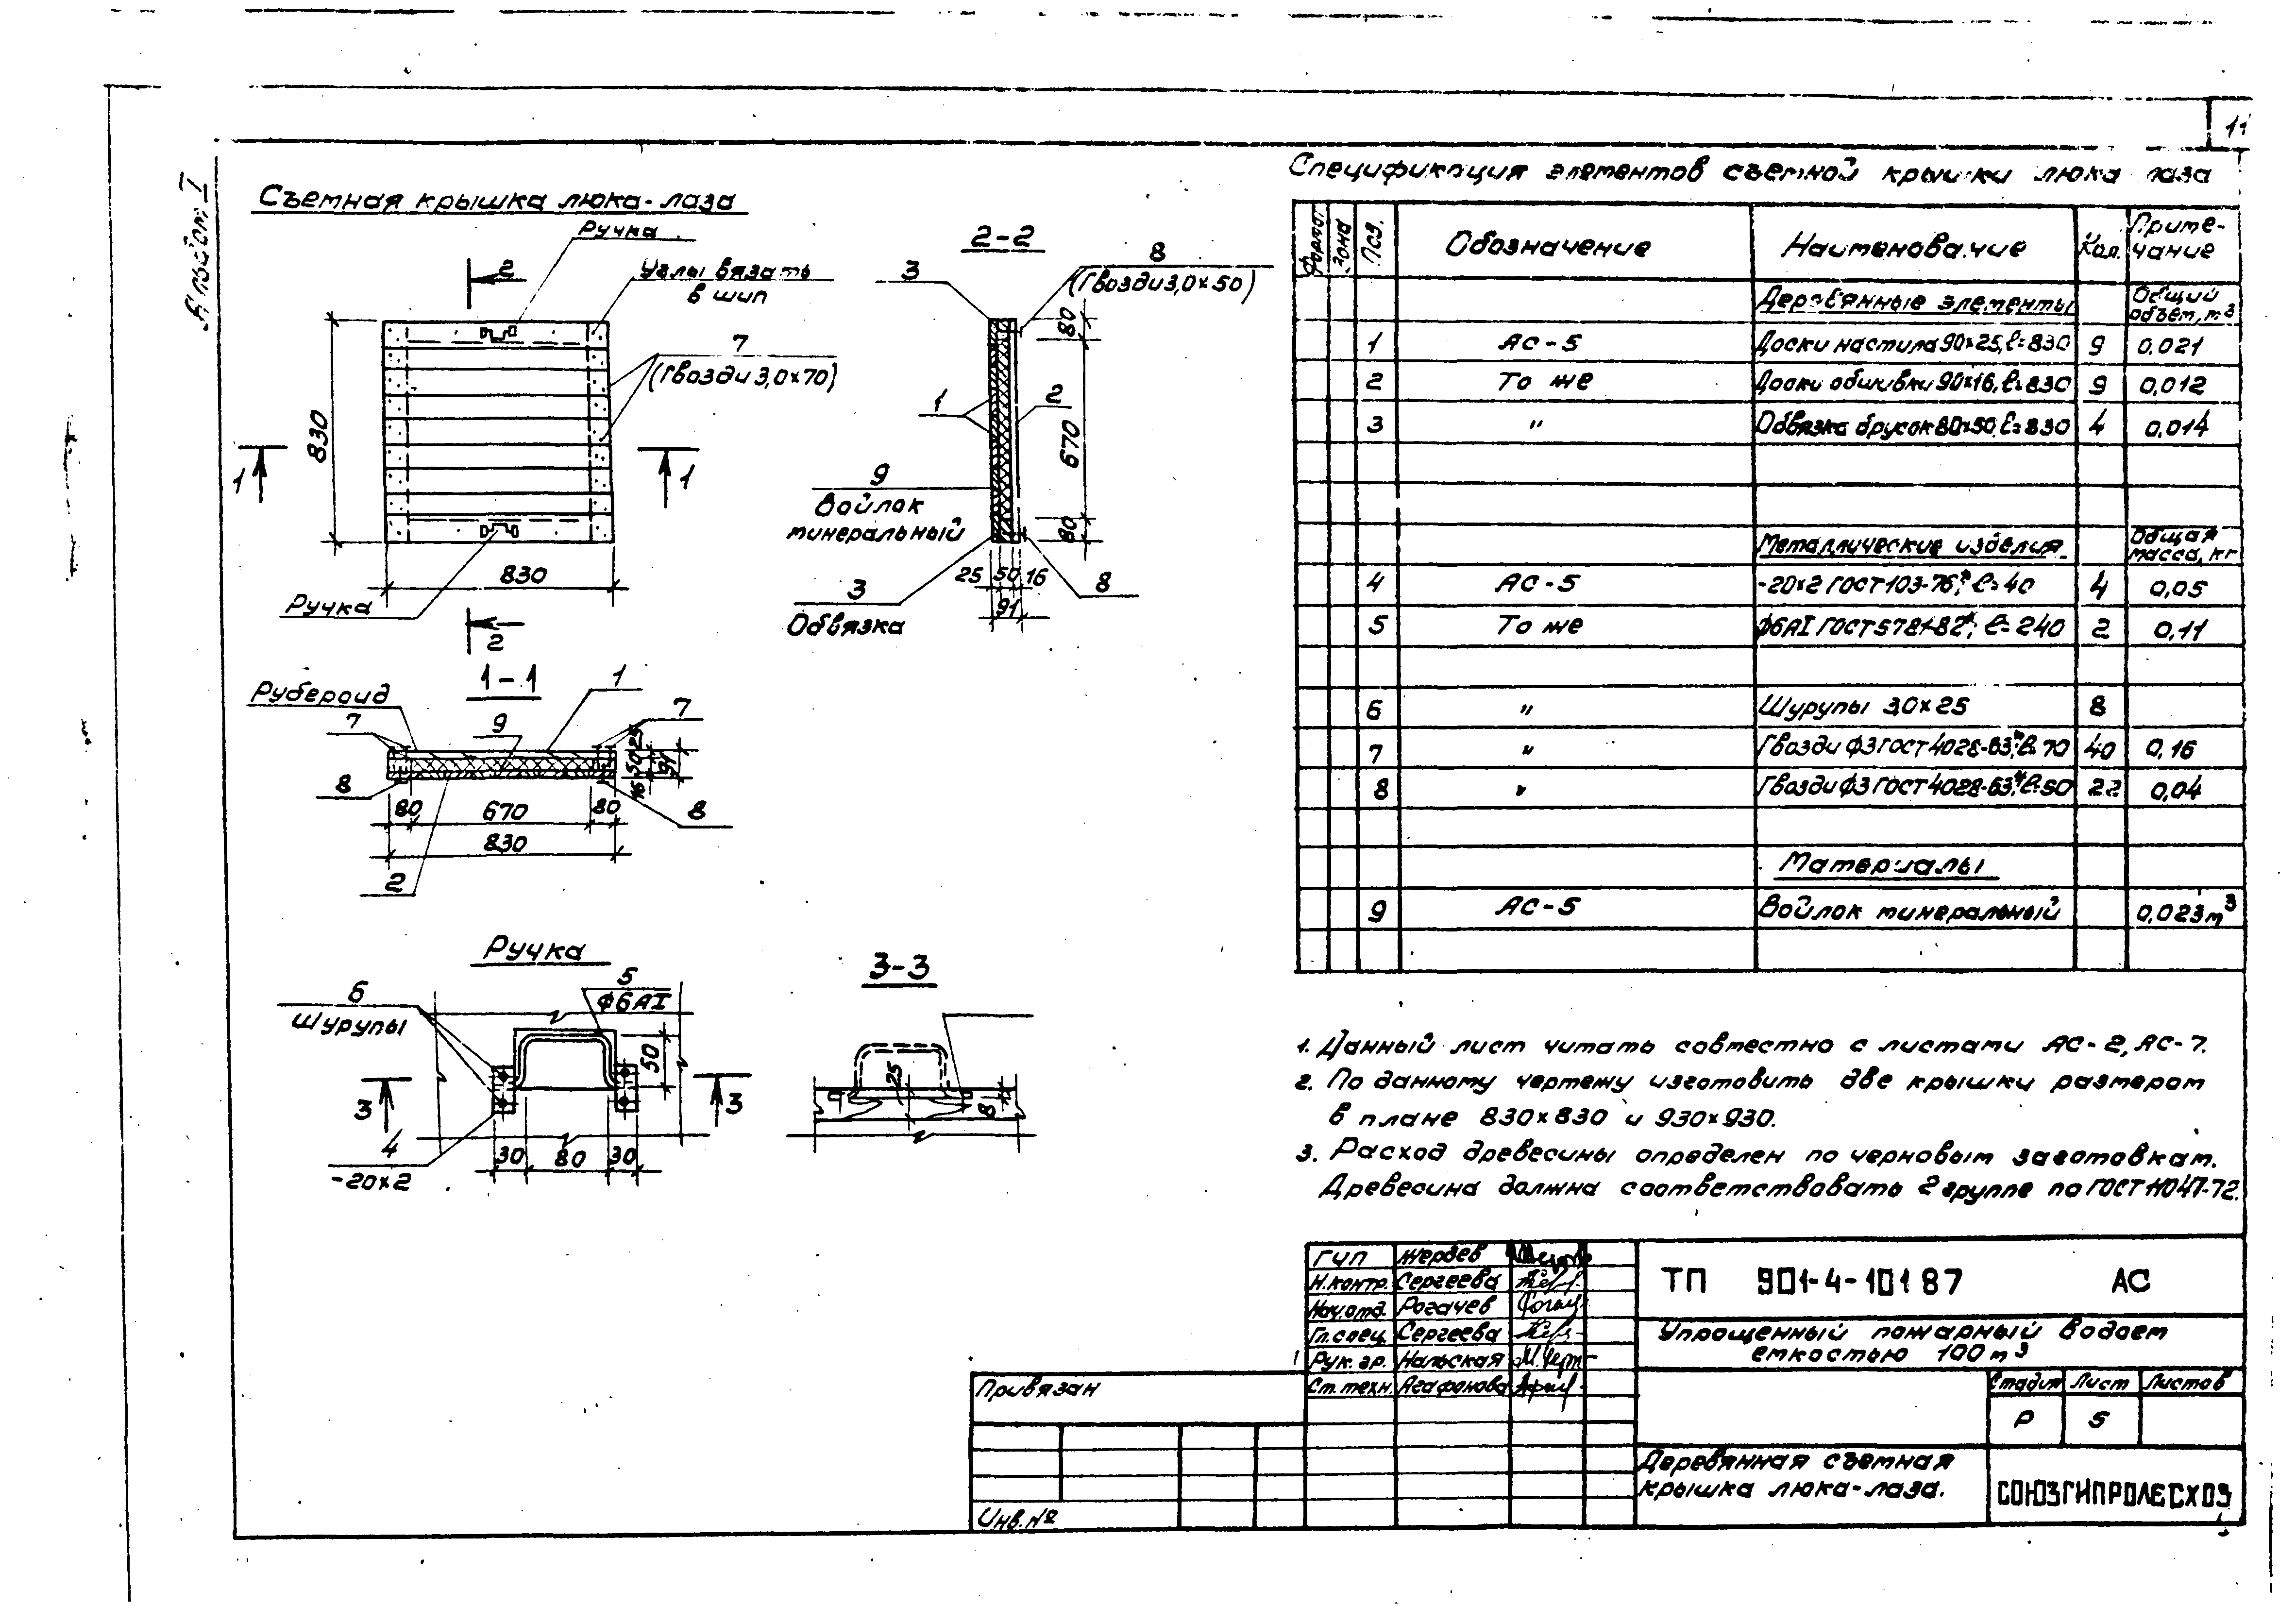 11
Альбом I
Съемная крышка люка-лаза
Ручка
2
Углы вязать
в шип
7
(Гвозди 3,0×70)
830
1
1
830
Ручка
2
2-2
3
8
(Гвозди 3,0×50)
80
1
2
670
9
Войлок
минеральный
80
25 50 16
91
3
Обвязка
8
1-1
Рубероид
1
7
9
7
25
50
16
91
8
80
670
80
8
830
2
Ручка
6
Шурупы
5
ф6АI
50
3
3
4
-20×2
30 80 30
3-3
25
8
Спецификация элементов съемной крышки люка лаза
Формат Зона Поз. Обозначение Наименование Кол. Приме-
чание
Деревянные элементы Общий
объем, м³
1 АС-5 Доски настила 90×25, ℓ=830 9 0,021
2 То же Доски обшивки 90×16, ℓ=830 9 0,012
3 " Обвязка брусок 80×50, ℓ=830 4 0,014
Металлические изделия Общая
масса, кг
4 АС-5 -20×2 ГОСТ 103-76*, ℓ=40 4 0,05
5 То же ф6АI ГОСТ 5781-82*, ℓ=240 2 0,11
6 " Шурупы 3,0×25 8
7 " Гвозди ф3 ГОСТ 4028-63*, ℓ=70 40 0,16
8 " Гвозди ф3 ГОСТ 4028-63*, ℓ=50 22 0,04
Материалы
9 АС-5 Войлок минеральный 0,023м³
1. Данный лист читать совместно с листами АС-2, АС-7.
2. По данному чертежу изготовить две крышки размером
в плане 830×830 и 930×930.
3. Расход древесины определен по черновым заготовкам.
Древесина должна соответствовать 2 группе по ГОСТ 11047-72.
ГИП Жердев
Н.контр. Сергеева
Нач.отд. Рогачев
Гл.спец. Сергеева
Рук. гр. Нальская
Ст.техн. Агафонова
ТП 901-4-101 87 АС
Упрощенный пожарный водоем
емкостью 100м³
Стадия Лист Листов
Р 5
Деревянная съемная
крышка люка-лаза.
СОЮЗГИПРОЛЕСХОЗ
Привязан
Инв.№